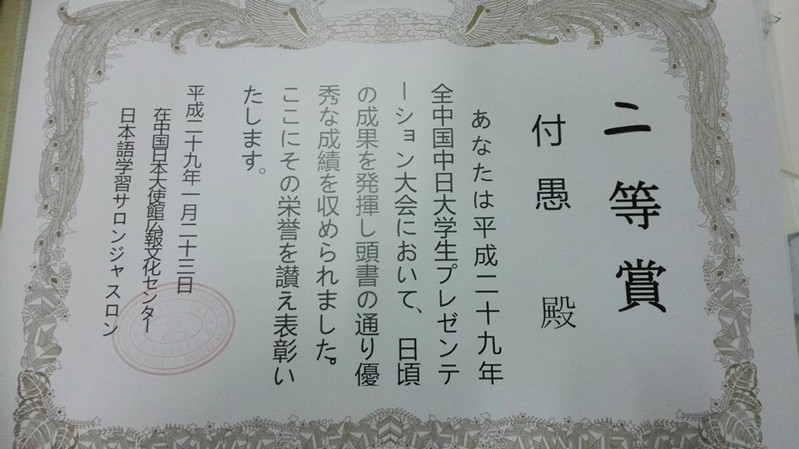 二等賞
付愚 殿
あなたは平成二十九年
全中国中日大学生プレゼンテ
ーション大会において、日頃
の成果を発揮し頭書の通り優
秀な成績を収められました。
ここにその栄誉を讃え表彰い
たします。
平成二十九年一月二十三日
在中国日本大使館広報文化センター
日本語学習サロンジャスロン